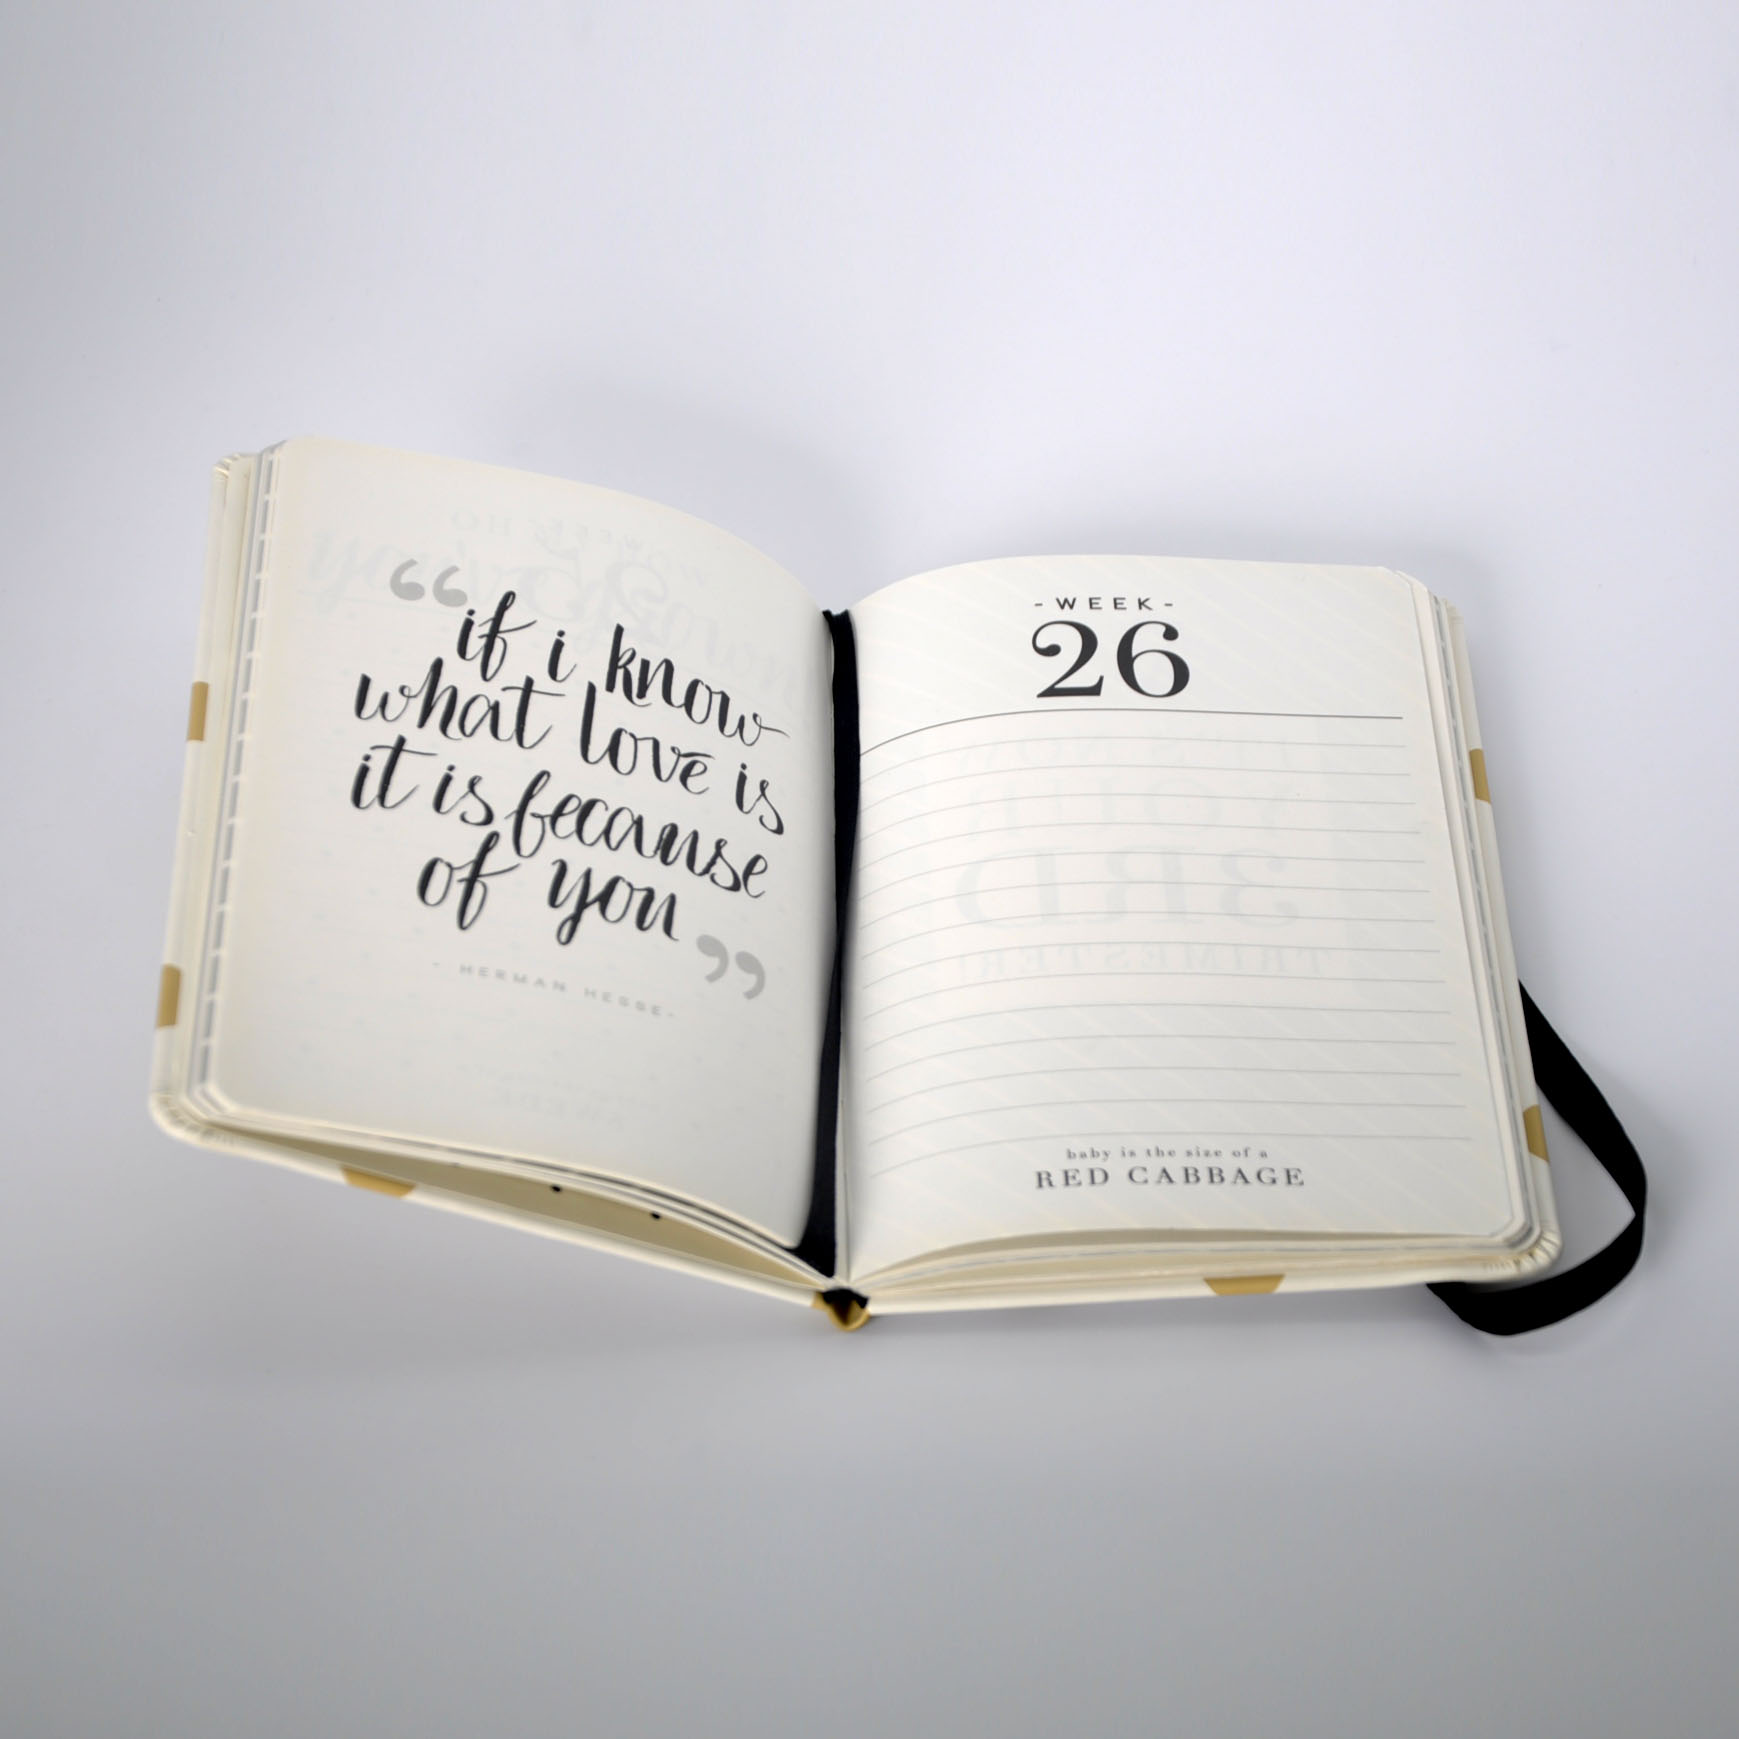 “if i know
what love is
it is because
of you”
- HERMAN HESSE-
- WEEK -
26
baby is the size of a
RED CABBAGE
3RD
TRIMESTER!